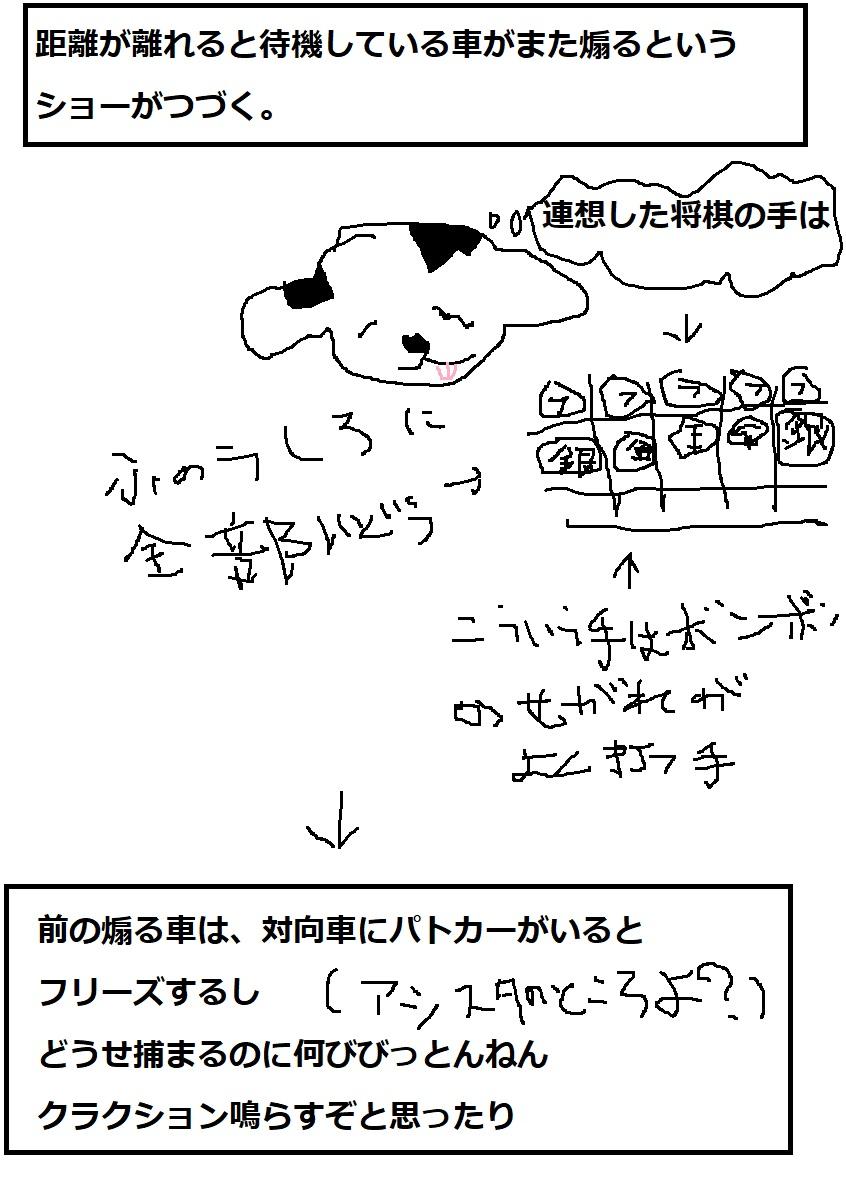 距離が離れると待機している車がまた煽るという
ショーがつづく。
連想した将棋の手は
フ フ フ フ フ
銀 金 王 金 銀
ふのうしろに
全部いどう
こういう手はボンボン
のせがれが
よく打つ手
前の煽る車は、対向車にパトカーがいると
フリーズするし (アシスタのところよ?)
どうせ捕まるのに何びびっとんねん
クラクション鳴らすぞと思ったり